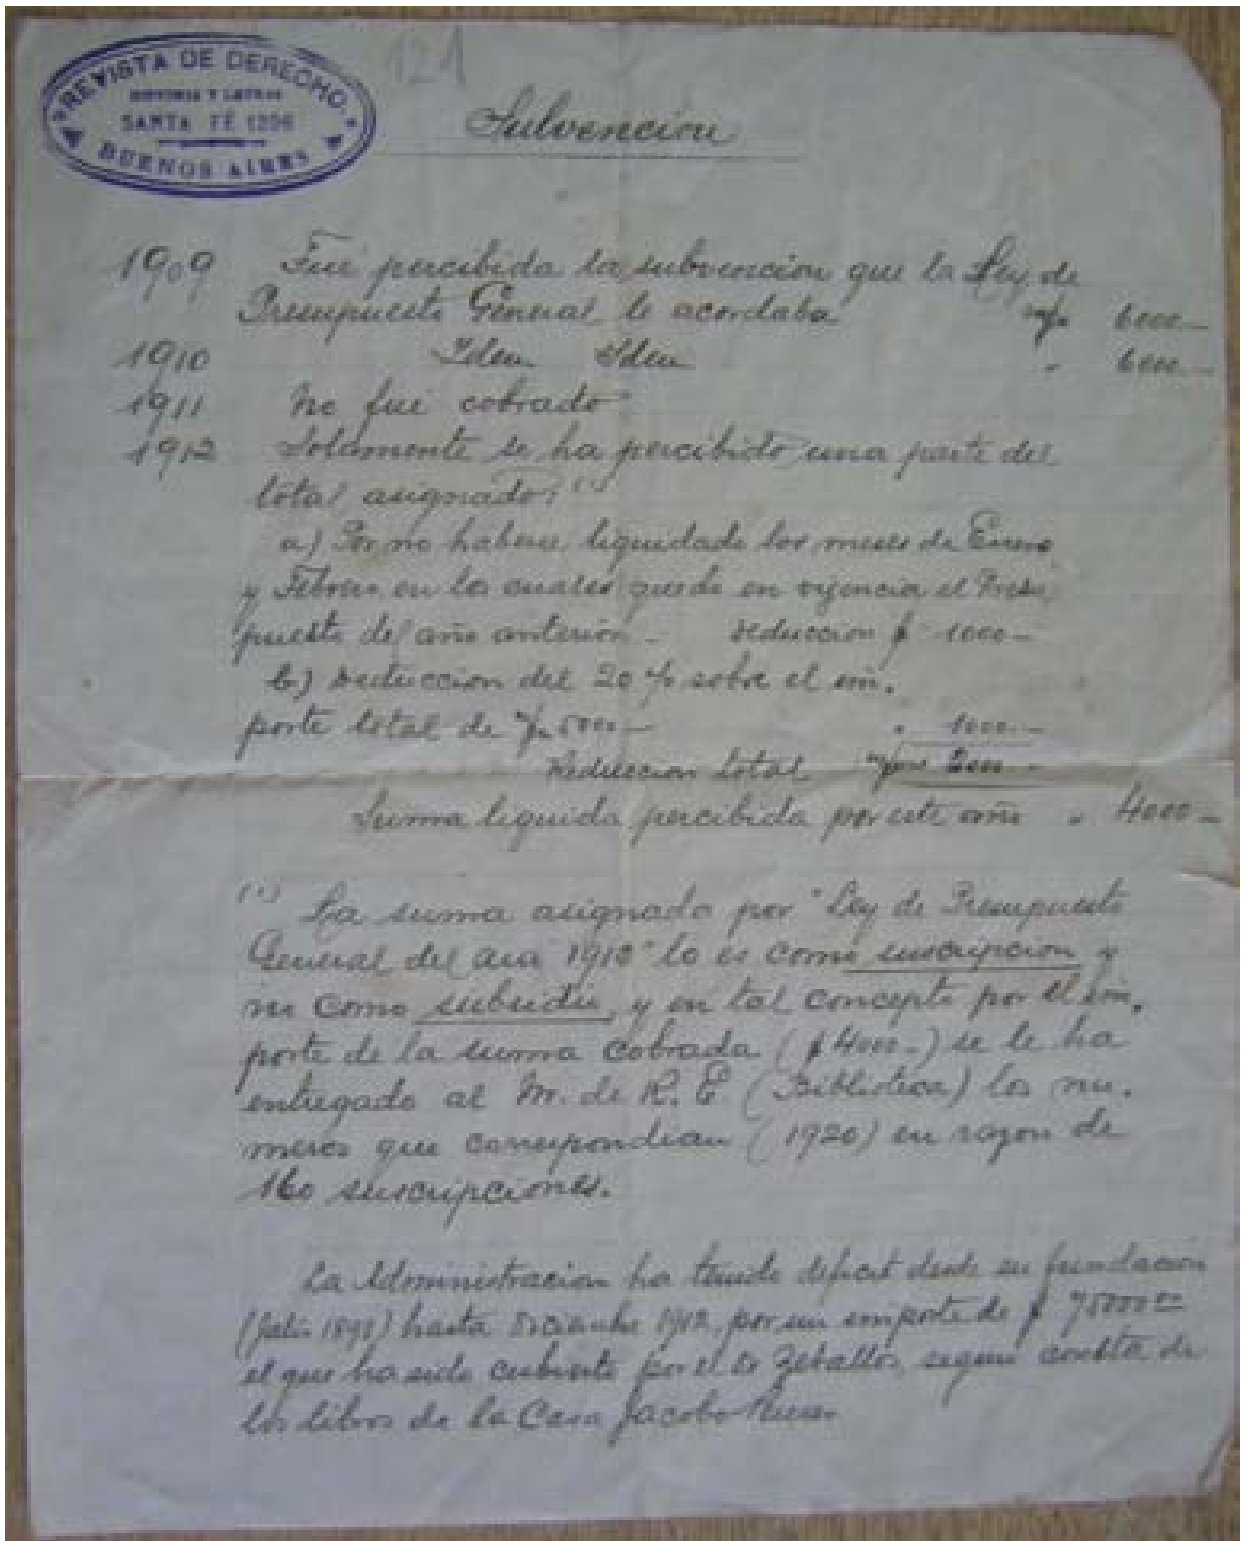 121
REVISTA DE DERECHO,
HISTORIA Y LETRAS
SANTA FÉ 1396
BUENOS AIRES
Subvención
1909 Fué percibida la subvencion que la Ley de
Presupuesto General le acordaba m/n 6000.—
1910 Idem Idem " 6000.—
1911 No fué cobrado
1912 Solamente se ha percibido una parte del
total asignado: (1)
a) Por no haberse liquidado los meses de Enero
y Febrero en los cuales quedó en vigencia el Presu-
puesto del año anterior — deduccion $ 1000—
b) Deduccion del 20 % sobre el im-
porte total de m/n 5000— " 1000.—
Reduccion total 2000.—
Suma liquida percibida por este año " 4000—
(1) La suma asignado por "Ley de Presupuesto
General del año 1910" lo es como suscripcion y
no como subsidio, y en tal concepto por el im-
porte de la suma cobrada ($ 4000—) se le ha
entregado al M. de R. E (Biblioteca) los nu-
meros que correspondian (1920) en razon de
160 suscripciones.
La Administracion ha tenido deficit desde su fundación
(Julio 1898) hasta Diciembre 1912, por un importe de $
el que ha sido cubierto por el Dr Zeballos, segun consta de
los libros de la Casa Jacobo Peuser